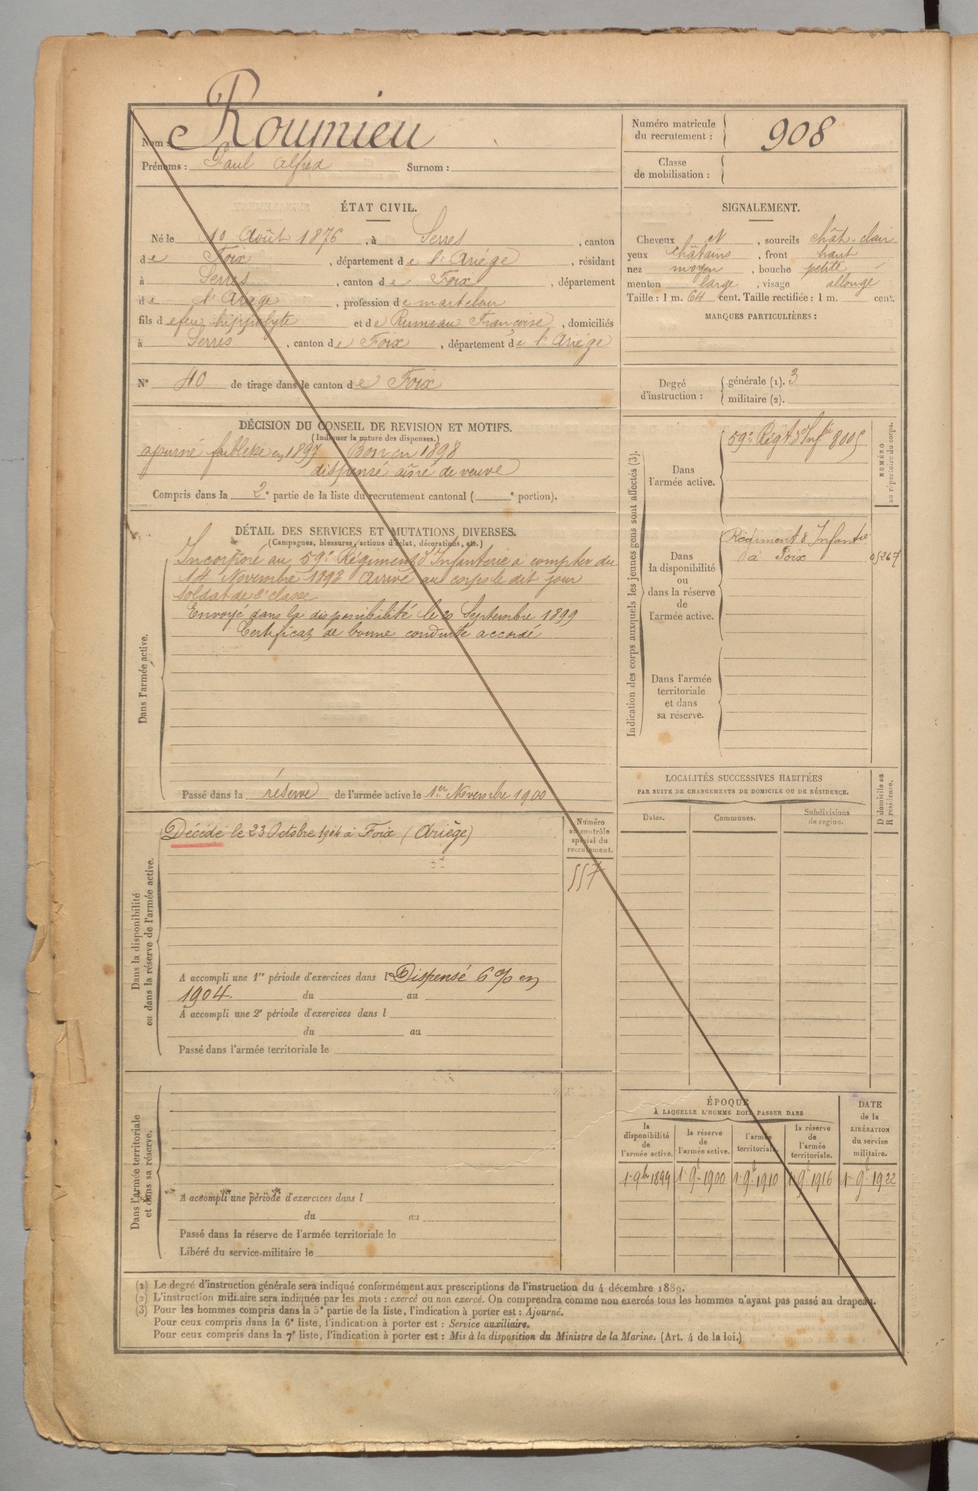 Nom : Roumieu
Prénoms : Paul Alfred Surnom :
Numéro matricule du recrutement : 908
Classe de mobilisation :
ÉTAT CIVIL.
Né le 10 Août 1876, à Serres, canton
de Foix, département de l'Ariège, résidant
à Serres, canton de Foix, département
de l'Ariège, profession de
fils de feu hippolyte et de Françoise, domiciliés
à Serres, canton de Foix, département de l'Ariège
N° 40 de tirage dans le canton de Foix
SIGNALEMENT.
Cheveux, sourcils chât. clair
yeux châtains, front haut
nez moyen, bouche petite
menton large, visage allongé
Taille : 1 m. 64 cent. Taille rectifiée : 1 m. cent.
MARQUES PARTICULIÈRES :
Degré d'instruction : générale (1). 3
militaire (2).
DÉCISION DU CONSEIL DE REVISION ET MOTIFS.
(Indiquer la nature des dispenses.)
ajourné faiblesse en 1897 Bon en 1898
dispensé aîné de veuve
Compris dans la 2e partie de la liste du recrutement cantonal ( e portion).
DÉTAIL DES SERVICES ET MUTATIONS DIVERSES.
(Campagnes, blessures, actions d'éclat, décorations, etc.)
Dans l'armée active.
Incorporé au 59e Régiment d'Infanterie à compter du
14 Novembre 1898 Arrivé au corps le dit jour
soldat de 2e classe
Envoyé dans la disponibilité le Septembre 1899
Certificat de bonne conduite accordé
Passé dans la réserve de l'armée active le 1er Novembre 1900
Indication des corps auxquels les jeunes gens sont affectés (3).
NUMÉRO au répertoire du corps.
Dans l'armée active.
59e Régt d'Inftie 8005
Dans la disponibilité ou dans la réserve de l'armée active.
Régiment d'Infantie
à Foix
Dans l'armée territoriale et dans sa réserve.
LOCALITÉS SUCCESSIVES HABITÉES
PAR SUITE DE CHANGEMENTS DE DOMICILE OU DE RÉSIDENCE.
Dates. Communes. Subdivisions de région. D domicile ou R résidence.
Dans la disponibilité ou dans la réserve de l'armée active.
Décédé le 23 Octobre à Foix (Ariège)
Numéro au contrôle spécial du recrutement.
557
A accompli une 1re période d'exercices dans l Dispensé 6 % en
1904 du au
A accompli une 2e période d'exercices dans l
du au
Passé dans l'armée territoriale le
Dans l'armée territoriale et dans sa réserve.
A accompli une période d'exercices dans l
du au
Passé dans la réserve de l'armée territoriale le
Libéré du service militaire le
ÉPOQUE
À LAQUELLE L'HOMME DOIT PASSER DANS
la disponibilité de l'armée active. la réserve de l'armée active. l'armée territoriale. la réserve de l'armée territoriale.
DATE de la LIBÉRATION du service militaire.
1er 9bre 1899 1er 9bre 1900 1er 9bre 1910 1er 9bre 1916 1er 9bre 1922
(1) Le degré d'instruction générale sera indiqué conformément aux prescriptions de l'instruction du 4 décembre 1889.
(2) L'instruction militaire sera indiquée par les mots : exercé ou non exercé. On comprendra comme non exercés tous les hommes n'ayant pas passé au drapeau.
(3) Pour les hommes compris dans la 5e partie de la liste, l'indication à porter est : Ajourné.
Pour ceux compris dans la 6e liste, l'indication à porter est : Service auxiliaire.
Pour ceux compris dans la 7e liste, l'indication à porter est : Mis à la disposition du Ministre de la Marine. (Art. 4 de la loi.)